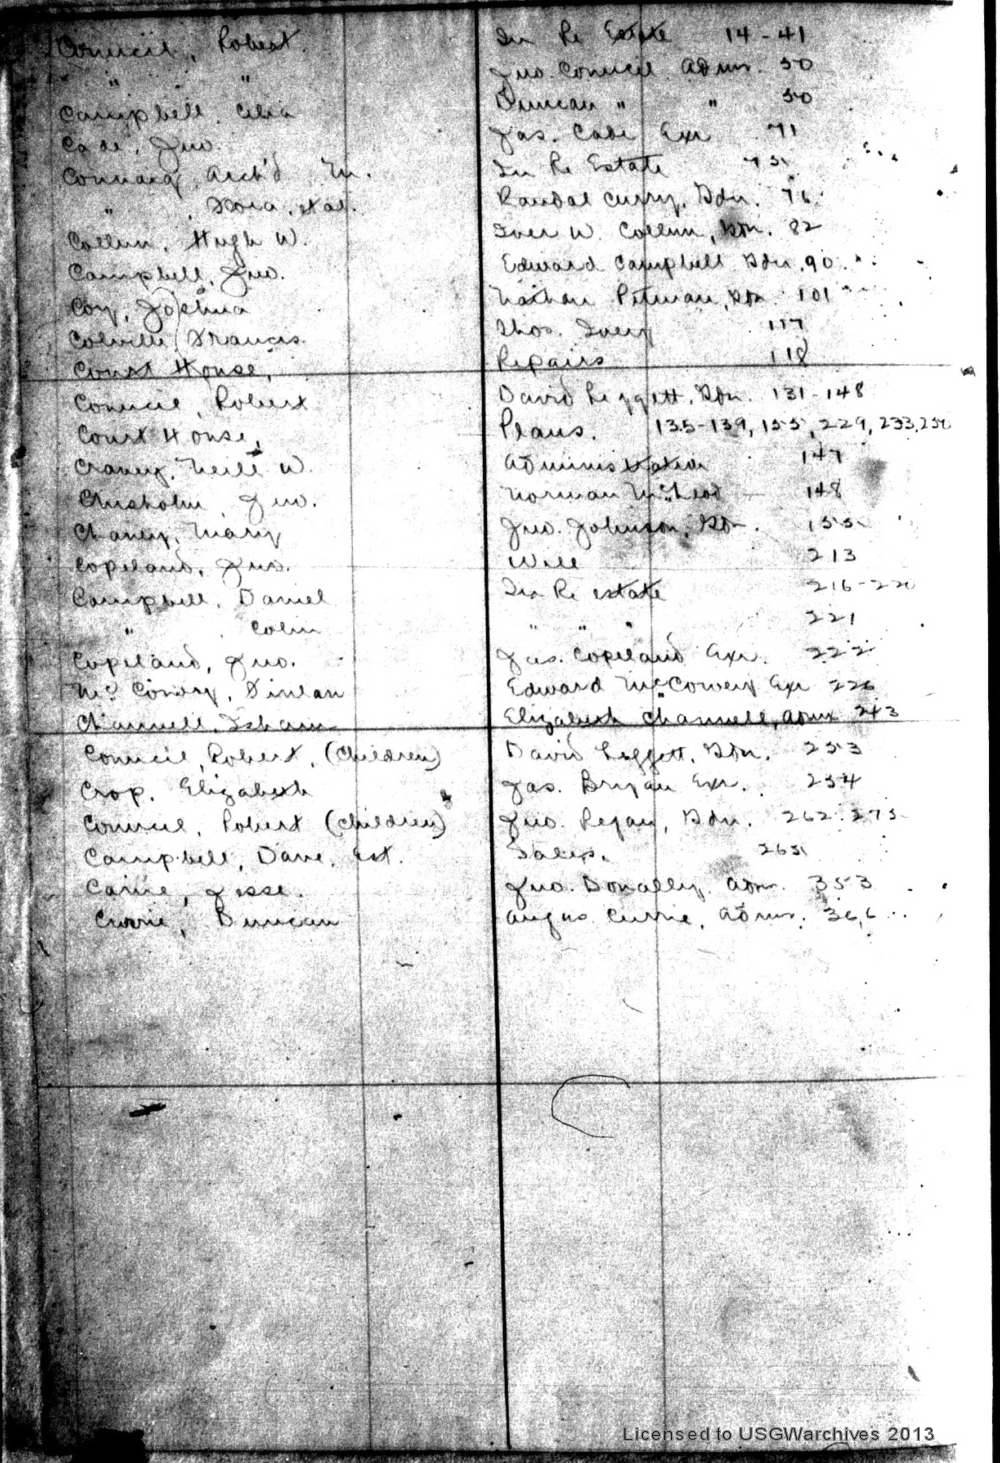 Council, Robert. In Re Estate 14-41
" " Jno. Council Admr. 50
Campbell, Duncan " " 50
Cade, Jno. Jas. Cade Exr 71
Arch'd M. In Re Estate 75
" Randal Curry, Gdn. 76
Collum, Hugh W. Iver W. Collum, Gdn. 82
Campbell, Jno. Edward Campbell Gdn. 90
Coy, Joshua Nathan Pitman, Gdn 101
Colville, Francis. Thos. Ivey 117
Court House, Repairs 118
Council, Robert David Leggett, Gdn. 131-148
Court House, Plans. 135-139, 155, 229, 233, 250
Neill W. Administration 147
Chisholm, Jno. Norman McLeod 148
Chaney, Mary Jno. Johnson, Gdn. 155
Copeland, Jno. Will 213
Campbell, Daniel In Re estate 216-220
" Colin " " " 221
Copeland, Jno. Jas. Copeland Exr. 222
Edward Exr 226
Channell, Isham Elizabeth Channell, Admx 243
Council, Robert, (Children) David Leggett, Gdn. 253
Crop, Elizabeth Jas. Bryan Exr. 254
Council, Robert (Children) Jno. Regan, Gdn. 262-275
Campbell, Dave, Est. Sales. 265
Jesse. Jno. Donally Adm. 353
Currie, Duncan Angus Currie, Admr. 366
Licensed to USGWarchives 2013